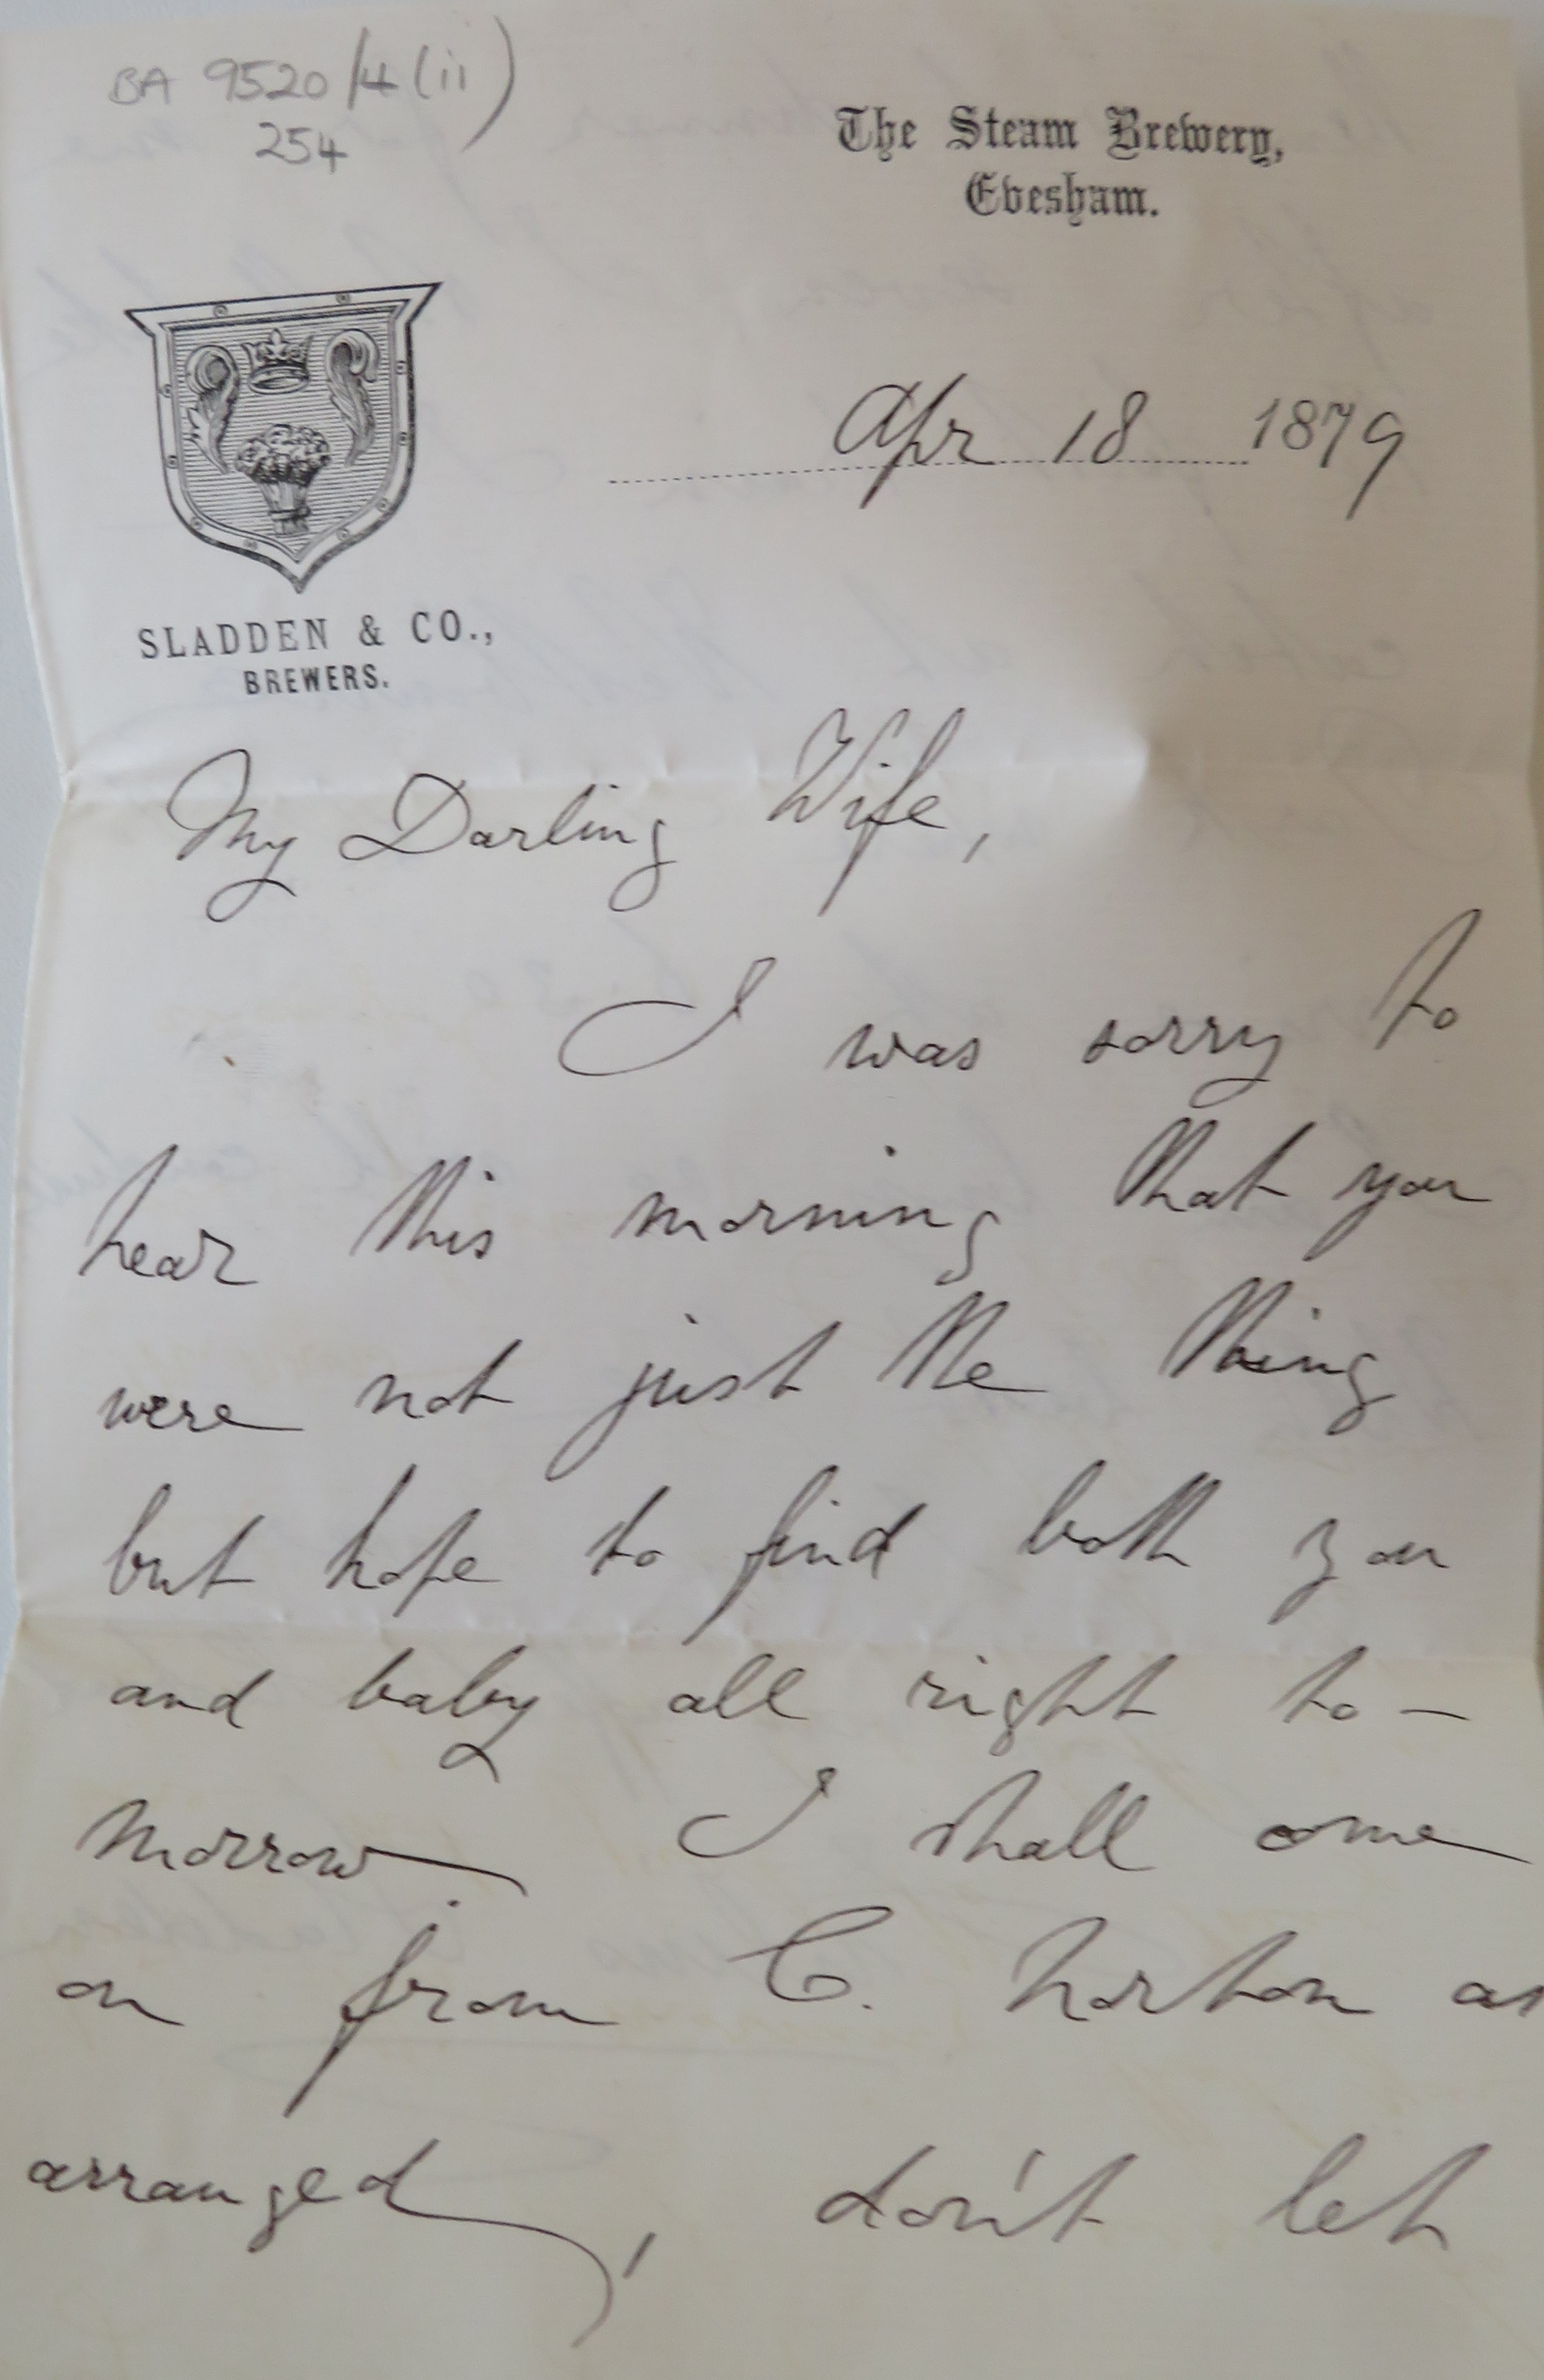 BA 9520/4(ii)
254
The Steam Brewery,
Evesham.
Apr 18 1879
SLADDEN & CO.,
BREWERS.
My Darling Wife,
I was sorry to
hear this morning that you
were not just the thing
but hope to find both you
and baby all right to-
morrow. I shall come
on from C. Norton as
arranged, don't let